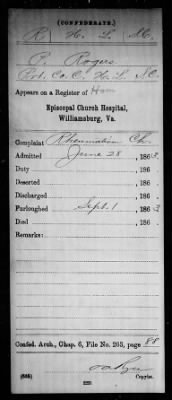 (CONFEDERATE.)
R. H. L. N.C.
P. Rogers
Pvt. Co. C. H. L. N.C.
Appears on a Register of Hom
Episcopal Church Hospital,
Williamsburg, Va.
Complaint Rheumatism Ch.
Admitted June 28, 1863.
Duty , 186 .
Deserted , 186 .
Discharged , 186 .
Furloughed Sept. 1, 1863
Died , 186 .
Remarks:
Confed. Arch., Chap. 6, File No. 253, page 88
(635)
Copyist.